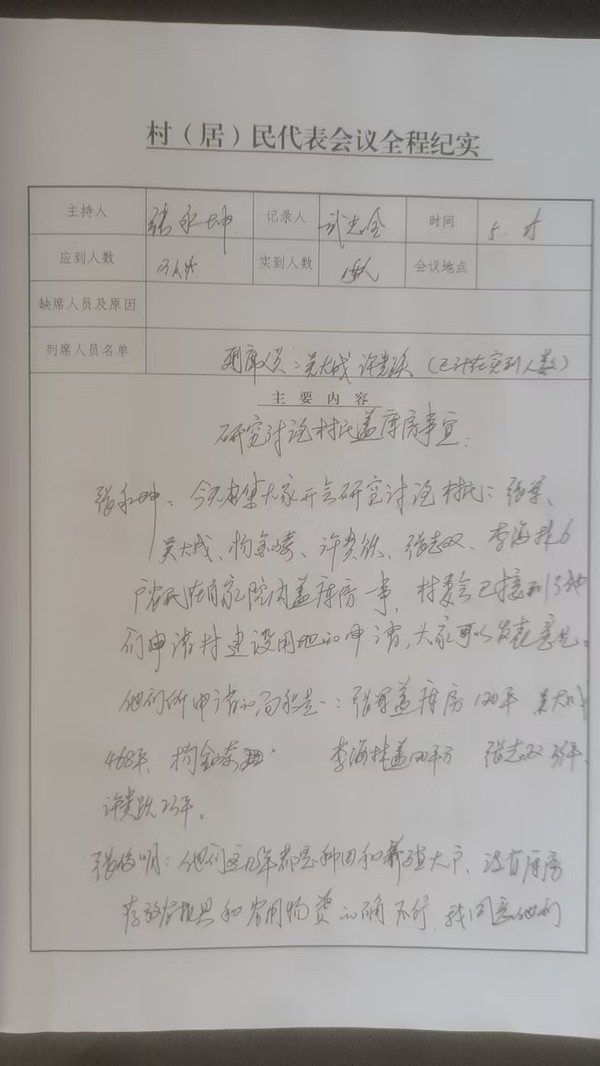 村（居）民代表会议全程纪实
主持人 张永坤 记录人 武志全 时间 5.
应到人数 实到人数 会议地点
缺席人员及原因
列席人员名单 列席人员：吴大成 许贵跃（已计在实到人数）
主要内容
研究讨论村民盖库房事宜：
张永坤：今天召集大家开会研究讨论村民：张军、
吴大成、 许贵跃、张志双、李海林6
户农民在自家院内盖库房一事，村委会已接到了他
们申请村建设用地的申请，大家可以发表意见。
他们所申请的面积是：张军盖库房120平 吴大成
468平、 李海林盖 平方 张志双 平、
许贵跃23平。
张俊明：他们这几年都是种田和养殖大户、没有库房
存放农机具和常用物资的确不行，我同意他们